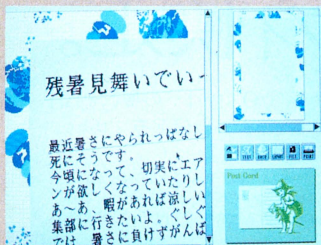 残暑見舞いでい
最近暑さにやられっぱなし
死にそうです。
今頃になって、切実にエア
ンが欲しくなっていたりし
あ～あ、暇があれば涼しい
集部に行きたいよ。ぐしぐ
では、暑さに負けずがんば
Post-Card